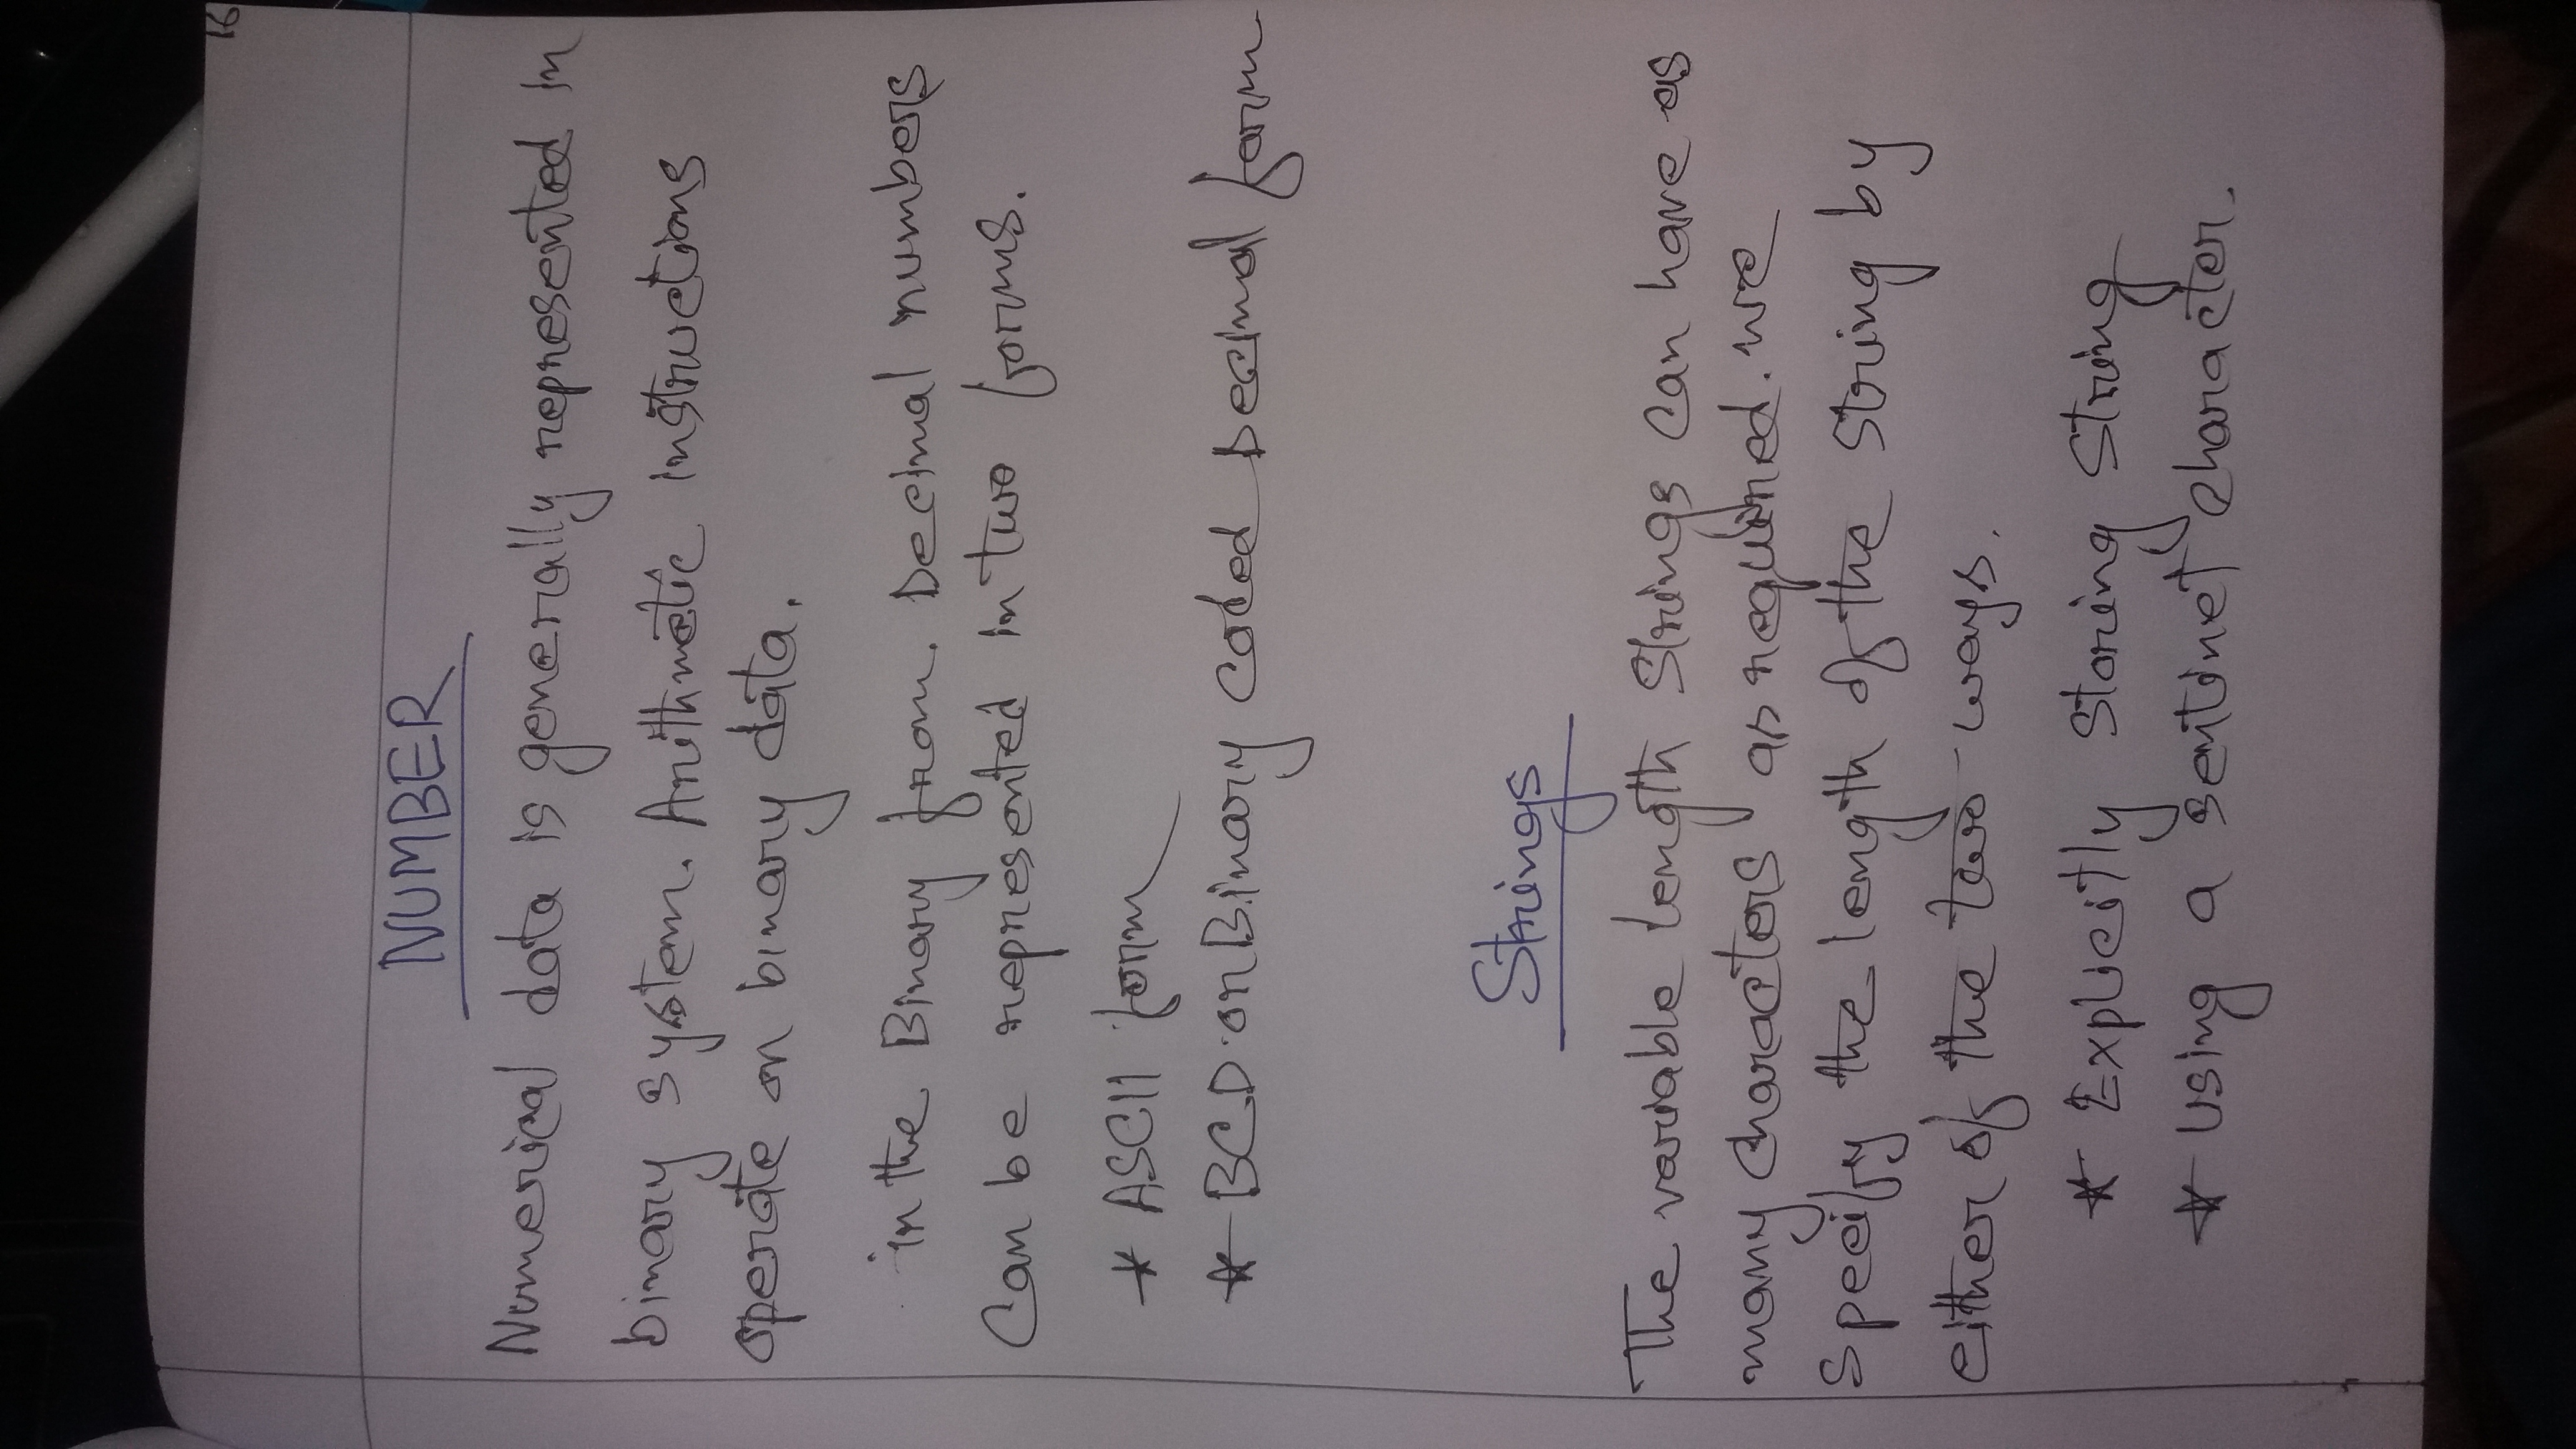 16
NUMBER
Numerical data is generally represented in
binary system. Arithmetic instructions
operate on binary data.
in the Binary from. Decimal numbers
Can be represented in two forms.
* ASCII form
* BCD or Binary coded Decimal form
Strings
The variable length Strings can have as
many characters as required. we
specify the length of the string by
either of the two ways.
* Explicitly storing string
* Using a sentinet character.